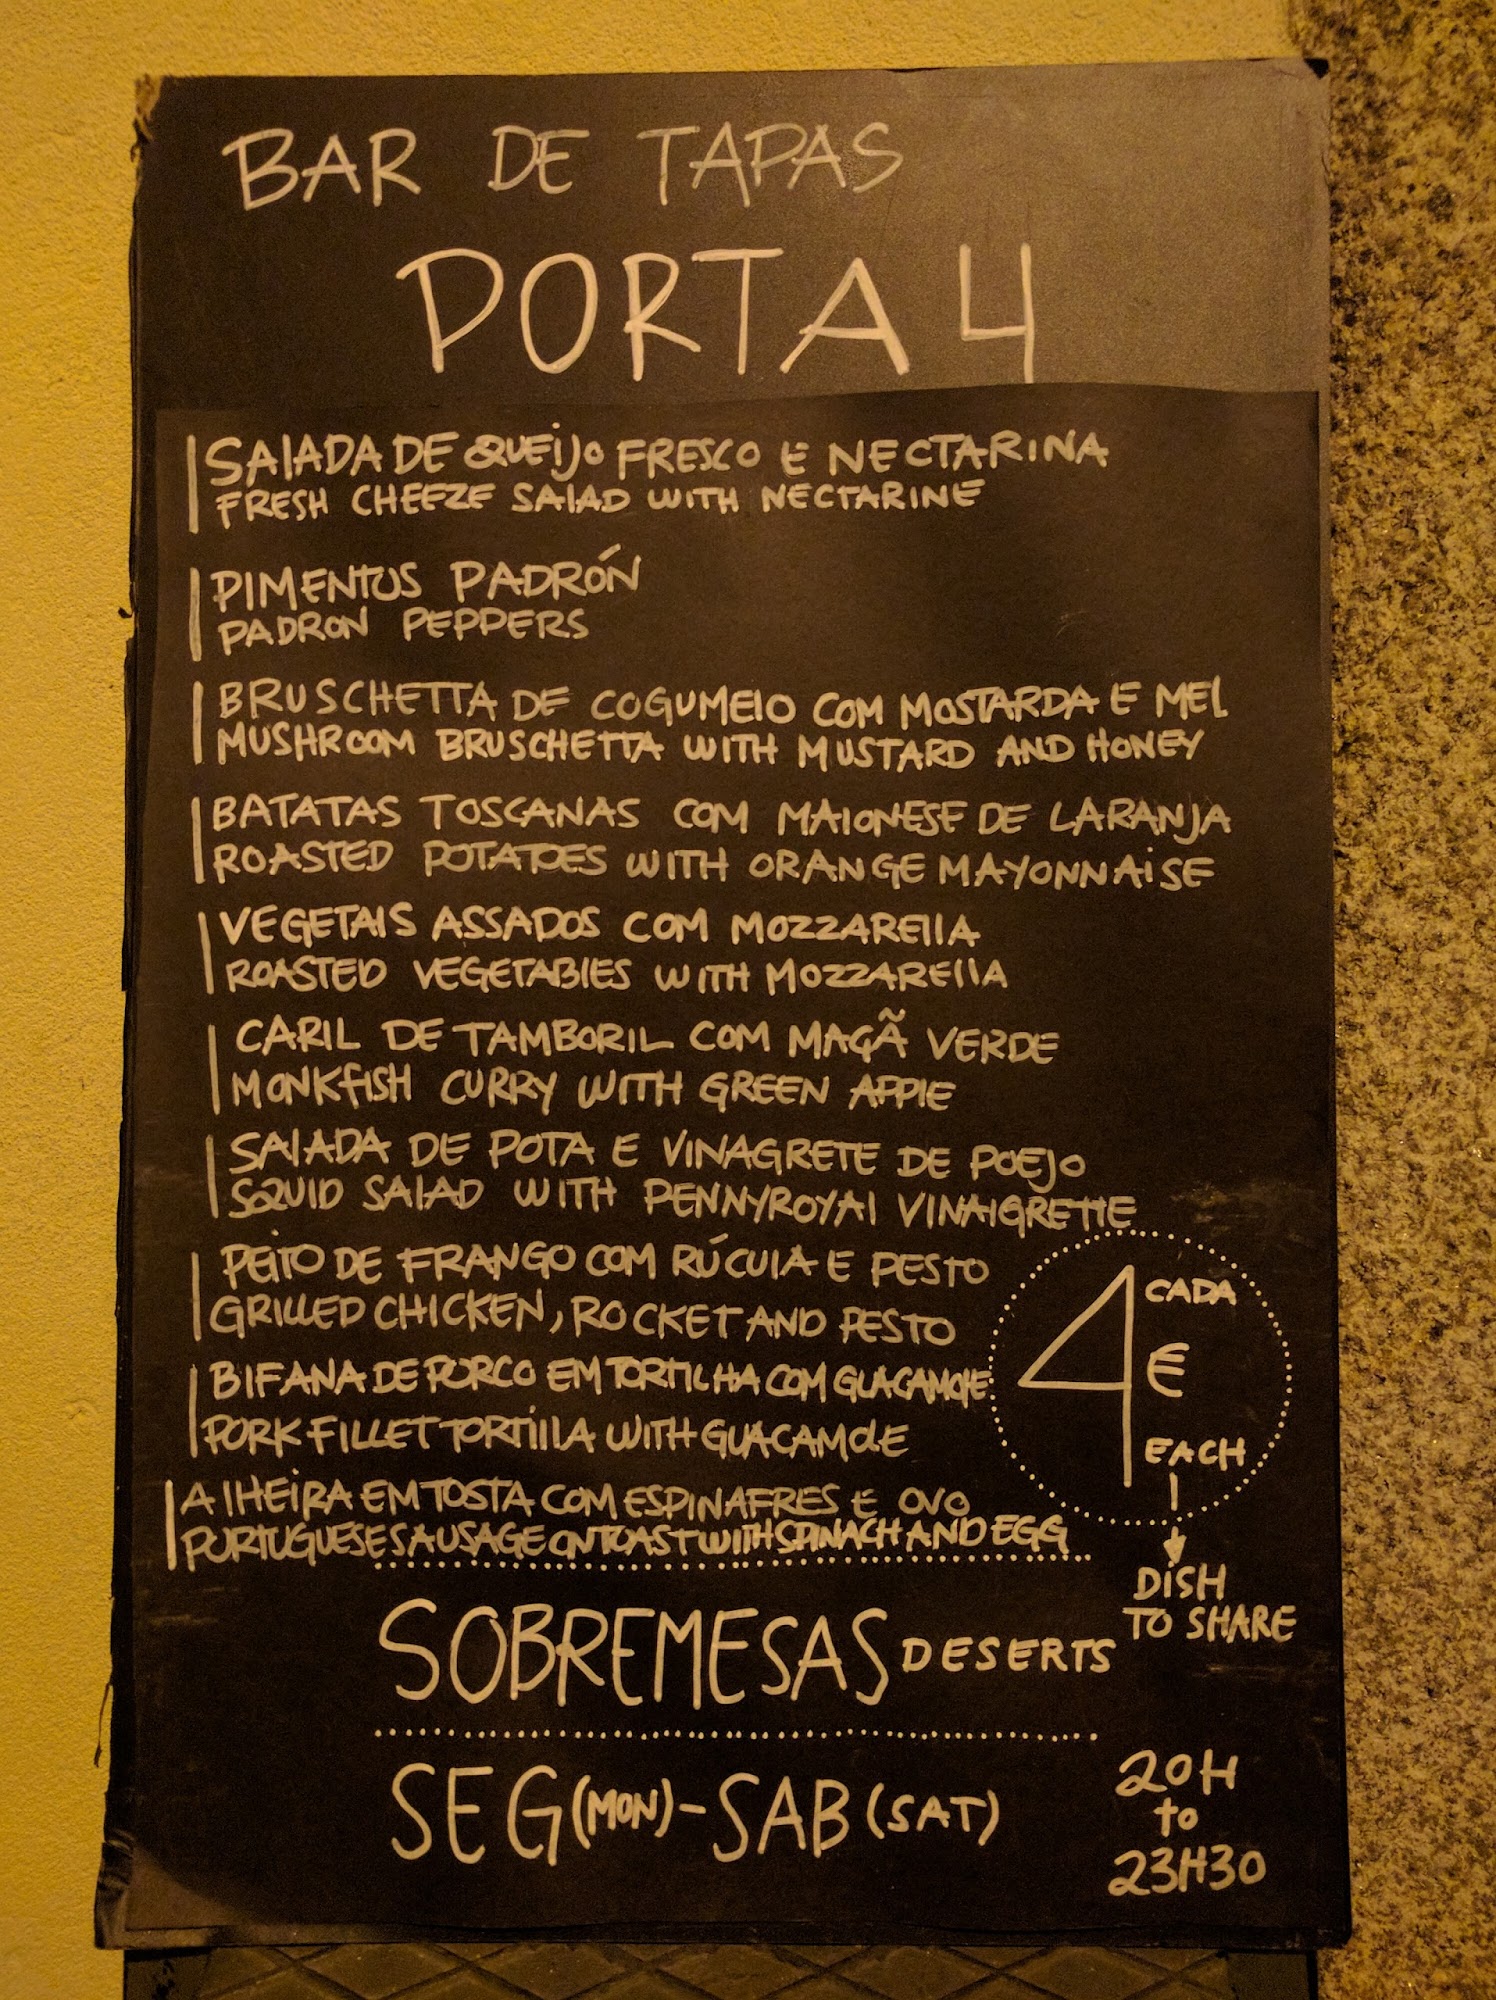 BAR DE TAPAS
PORTA 4
SALADA DE QUEIJO FRESCO E NECTARINA
FRESH CHEEZE SALAD WITH NECTARINE
PIMENTOS PADRÓN
PADRON PEPPERS
BRUSCHETTA DE COGUMELO COM MOSTARDA E MEL
MUSHROOM BRUSCHETTA WITH MUSTARD AND HONEY
BATATAS TOSCANAS COM MAIONESE DE LARANJA
ROASTED POTATOES WITH ORANGE MAYONNAISE
VEGETAIS ASSADOS COM MOZZARELLA
ROASTED VEGETABLES WITH MOZZARELLA
CARIL DE TAMBORIL COM MAÇÃ VERDE
MONKFISH CURRY WITH GREEN APPLE
SALADA DE POTA E VINAGRETE DE POEJO
SQUID SALAD WITH PENNYROYAL VINAIGRETTE
PEITO DE FRANGO COM RÚCULA E PESTO
GRILLED CHICKEN, ROCKET AND PESTO
BIFANA DE PORCO EM TORTILHA COM GUACAMOLE
PORK FILLET TORTILLA WITH GUACAMOLE
ALHEIRA EM TOSTA COM ESPINAFRES E OVO
PORTUGUESE SAUSAGE ON TOAST WITH SPINACH AND EGG
4 € CADA
EACH
DISH
TO SHARE
SOBREMESAS DESERTS
SEG (MON) - SAB (SAT)
20H
to
23H30